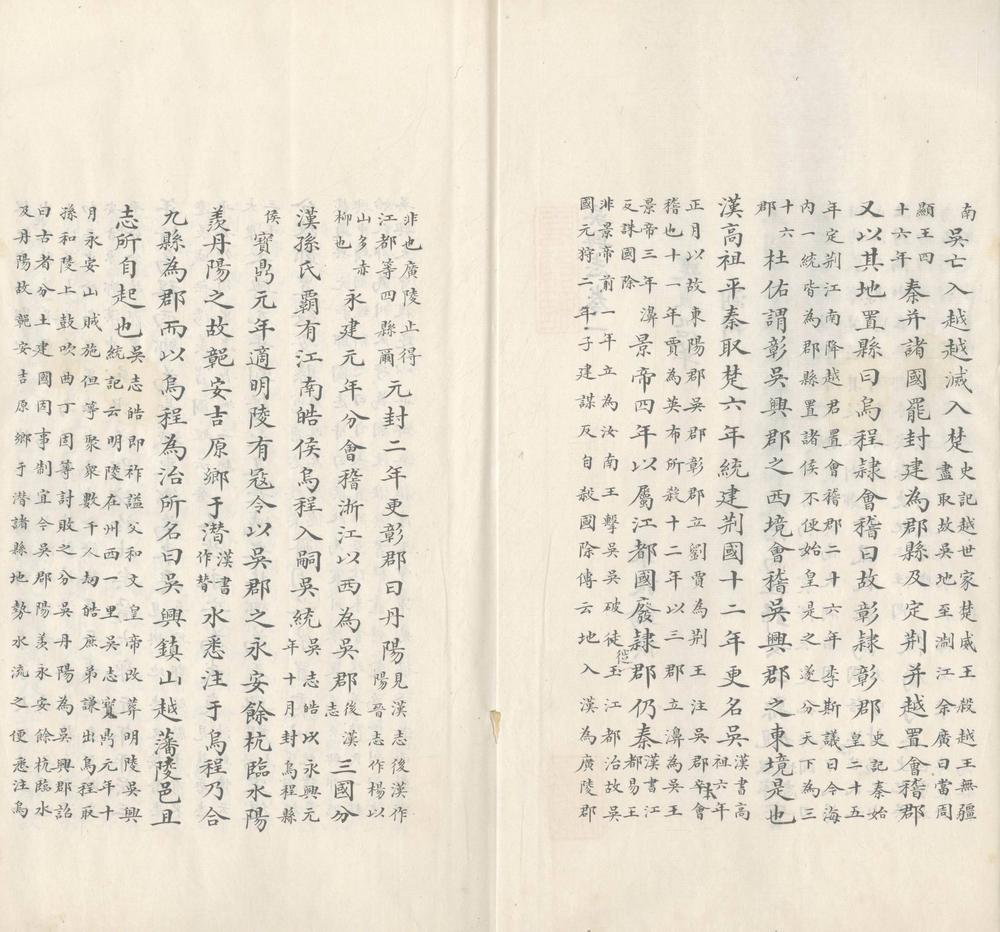 南 吳亡入越越滅入楚史記越世家楚威王殺越王無疆盡取故吳地至浙江徐廣曰當周
顯王四十六年秦并諸國罷封建為郡縣及定荆并越置會稽郡
又以其地置縣曰烏程隷會稽曰故彰隷彰郡史記秦始皇二十五
年定荆江南降越君置會稽郡二十六年李斯議曰令海
內一統皆為郡縣置諸侯不便始皇是之遂分天下為三
十六郡杜佑謂彰吳興郡之西境會稽吳興郡之東境是也
漢高祖平秦取楚六年統建荆國十二年更名吳漢書高祖六年
正月以故東陽郡吳郡彰郡立劉賈為荆王注吳郡本會
稽也十一年賈為英布所殺十二年以三郡立濞為吳王
景帝三年濞反誅國除景帝四年以屬江都國廢隷郡仍秦漢書江都易王
非景帝前一年立為汝南王擊吳破徒玉江都治故吳
國元狩二年子建謀反自殺國除傳云地入漢為廣陵郡
非也廣陵止得江都等四縣爾元封二年更彰郡曰丹陽見漢志後漢作陽晉志作楊以
山多赤柳也永建元年分會稽浙江以西為吳郡後漢志三國分
漢孫氏霸有江南皓侯烏程入嗣吳統吳志皓以永興元年十月封烏程縣
侯 寳鼎元年適明陵有寇令以吳郡之永安餘杭臨水陽
羨丹陽之故鄣安吉原鄉于潛漢書作朁水悉注于烏程乃合
九縣為郡而以烏程為治所名曰吳興鎮山越藩陵邑且
志所自起也吳志皓即祚謚父和文皇帝改葬明陵吳興統記云明陵在州西一里吳志寳鼎元年十
月永安山賊施但等聚衆數千人劫皓庶弟謙出烏程取
孫和陵上鼓吹曲丁固等討敗之分吳丹陽為吳興郡詔
曰古者分土建國因事制宜今吳郡陽羨永安餘杭臨水
及丹陽故鄣安吉原鄉于潛諸縣地勢水流之便悉注烏